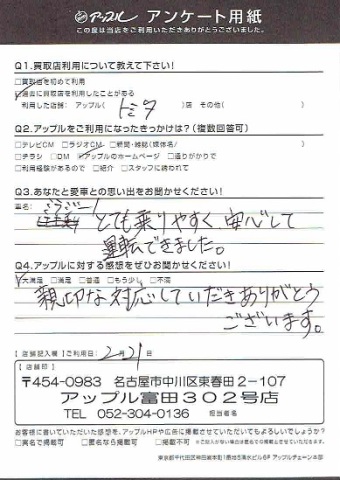 アップル アンケート用紙
この度は当店をご利用いただきありがとうございました。
Q1.買取店利用について教えて下さい!
□買取店を初めて利用
☑過去に買取店を利用したことがある
利用した店舗: アップル( トミタ )店 その他( )
Q2.アップルをご利用になったきっかけは?(複数回答可)
□テレビCM □ラジオCM □新聞・雑誌(媒体名: )
□チラシ □DM ☑アップルのホームページ □通りがかりで
□利用経験があるので □紹介 □スタッフに誘われて
Q3.あなたと愛車との思い出をお聞かせください!
車名:
とても乗りやすく、安心して
運転できました。
Q4.アップルに対する感想をぜひお聞かせください!
☑大満足 □満足 □普通 □もう少し □不満
親切な対応していただきありがとう
ございます。
【店舗記入欄】【ご利用日: 2月21日
【店舗印】
〒454-0983 名古屋市中川区東春田2-107
アップル富田302号店
TEL 052-304-0136 担当者名
お客様に書いていただいた感想を、アップルHPや広告に掲載させていただいてもよろしいでしょうか?
□実名で掲載可 □匿名なら掲載可 □掲載不可 ※ご記入がない場合は匿名での掲載とさせていただきます。